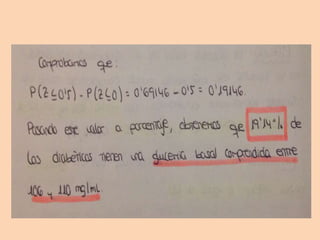 Comprobamos que:
P(Z≤0'5) - P(Z≤0) = 0'69146 - 0'5 = 0'19146.
Pasando este valor a porcentaje, obtenemos que 19'14% de
los diabéticos tienen una glucemia basal comprendida entre
106 y 110 mg/mL.